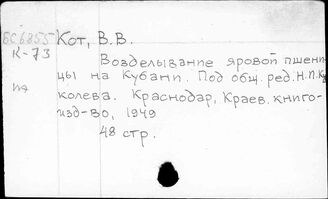 БС6855 Кот, В.В.
К-73
Возделывание яровой пшени-
цы на Кубани. Под общ. ред. Н.П.Кя
колева. Краснодар, Краев. книго-
изд-во, 1949
48 стр.